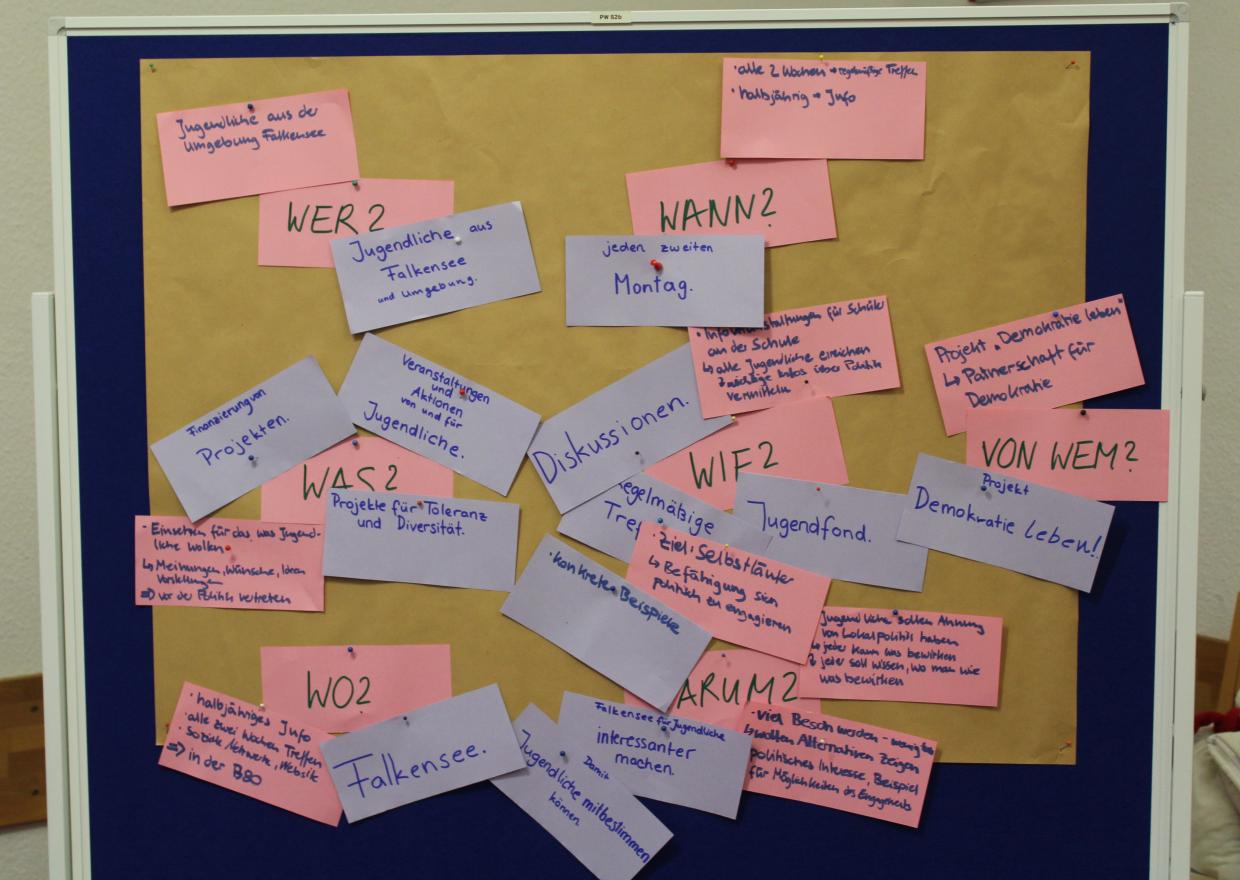 PW 82b
Jugendliche aus der
Umgebung Falkensee
WER?
Jugendliche aus
Falkensee
und Umgebung.
· alle 2 Wochen → regelmäßige Treffen
· halbjährig → Info
WANN?
jeden zweiten
Montag.
Finanzierung von
Projekten.
Veranstaltungen
und
Aktionen
von und für
Jugendliche.
WAS?
Projekte für Toleranz
und Diversität.
- Einsetzen für das was Jugend-
liche wollen
↳ Meinungen, Wünsche, Ideen
Vorstellungen
⇒ vor der Politik vertreten
für Schüler
an der Schule
↳ alle Jugendliche erreichen
wichtige Infos über Politik
vermitteln
Diskussionen.
WIE?
egelmäßige
Tref
Jugendfond.
· Ziel: Selbstläufer
↳ Befähigung sich
politisch zu engagieren
· konkrete Beispiele
Projekt „Demokratie leben"
↳ Partnerschaft für
Demokratie
VON WEM?
Projekt
Demokratie leben!
WO?
· halbjähriges Info
· alle zwei Wochen Treffen
· soziale Netzwerke, Website
⇒ in der B80
Falkensee.
ARUM?
Jugendliche sollen Ahnung
von Lokalpolitik haben
↳ jeder kann was bewirken
↳ jeder soll wissen, wo man wie
was bewirken
Damit
Jugendliche mitbestimmen
können
Falkensee für Jugendliche
interessanter
machen.
· viel Beschwerden - wenig
↳ wollen Alternativen zeigen
politisches Interesse, Beispiel
für Möglichkeiten des Engagements